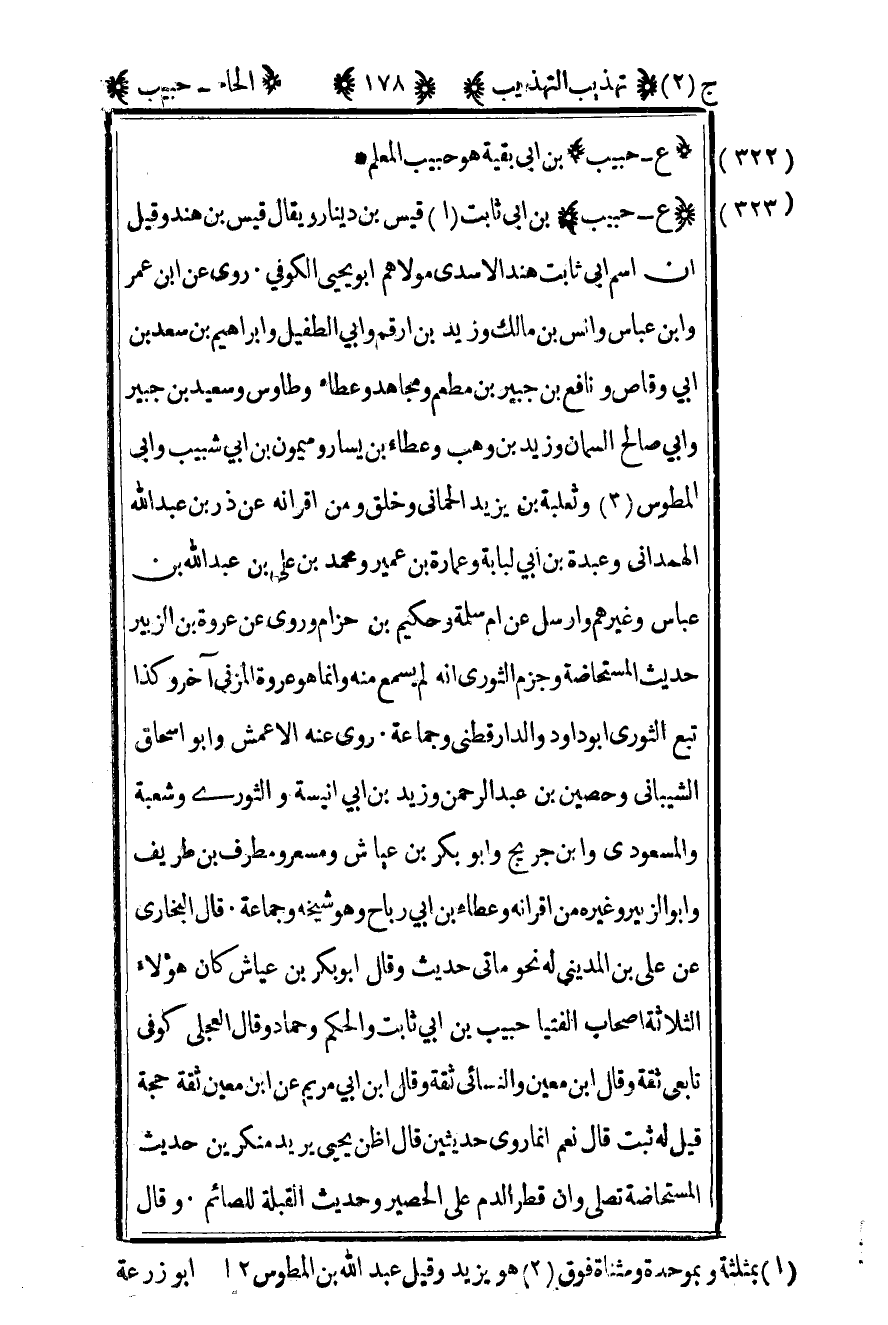 ج (٢) ﴿ تهذيب التهذيب ﴾ ﴿ ١٧٨ ﴾ ﴿ الحاء - حبيب ﴾
(٣٢٢) ﴿ ع - حبيب ﴾ بن ابي بقية هو حبيب المعلم *
(٣٢٣) ﴿ ع - حبيب ﴾ بن ابي ثابت (١) قيس بن دينار ويقال قيس بن هند وقيل
ان اسم ابي ثابت هند الاسدى مولاهم ابو يحيى الكوفي . روى عن ابن عمر
وابن عباس وانس بن مالك وزيد بن ارقم وابي الطفيل وابراهيم بن سعد بن
ابي وقاص و نافع بن جبير بن مطعم ومجاهد وعطاء وطاوس وسعيد بن جبير
وابي صالح السمان وزيد بن وهب وعطاء بن يسار وميمون بن ابي شبيب وابى
المطوس (٢) وثعلبة بن يزيد الحمانى وخلق ومن اقرانه عن ذر بن عبد الله
الهمدانى وعبدة بن ابي لبابة وعمارة بن عمير ومحمد بن علي بن عبد الله بن
عباس وغيرهم وارسل عن ام سلمة وحكيم بن حزام وروى عن عروة بن الزبير
حديث المستحاضة وجزم الثورى انه لم يسمع منه وانما هو عروة المزني آخر وكذا
تبع الثورى ابو داود والدارقطنى وجماعة . روى عنه الاعمش وابو اسحاق
الشيبانى وحصين بن عبد الرحمن وزيد بن ابي انيسة و الثورے وشعبة
والمسعودى وابن جريج وابو بكر بن عياش ومسعر ومطرف بن طريف
وابو الزبير وغيره من اقرانه وعطاء بن ابي رباح وهو شيخه وجماعة . قال البخارى
عن على بن المديني له نحو مائتى حديث وقال ابو بكر بن عياش كان هؤلاء
الثلاثة اصحاب الفتيا حبيب بن ابي ثابت والحكم وحماد وقال العجلى كوفى
تابعى ثقة وقال ابن معين والنسائى ثقة وقال ابن ابي مريم عن ابن معين ثقة حجة
قيل له ثبت قال نعم انما روى حديثين قال اظن يحيى يريد منكرين حديث
المستحاضة تصلى وان قطر الدم على الحصير وحديث القبلة للصائم . و قال
(١) بمثلثة و بموحدة ومثناة فوق (٢) هو يزيد وقيل عبد الله بن المطوس ١٢ ابو زرعة